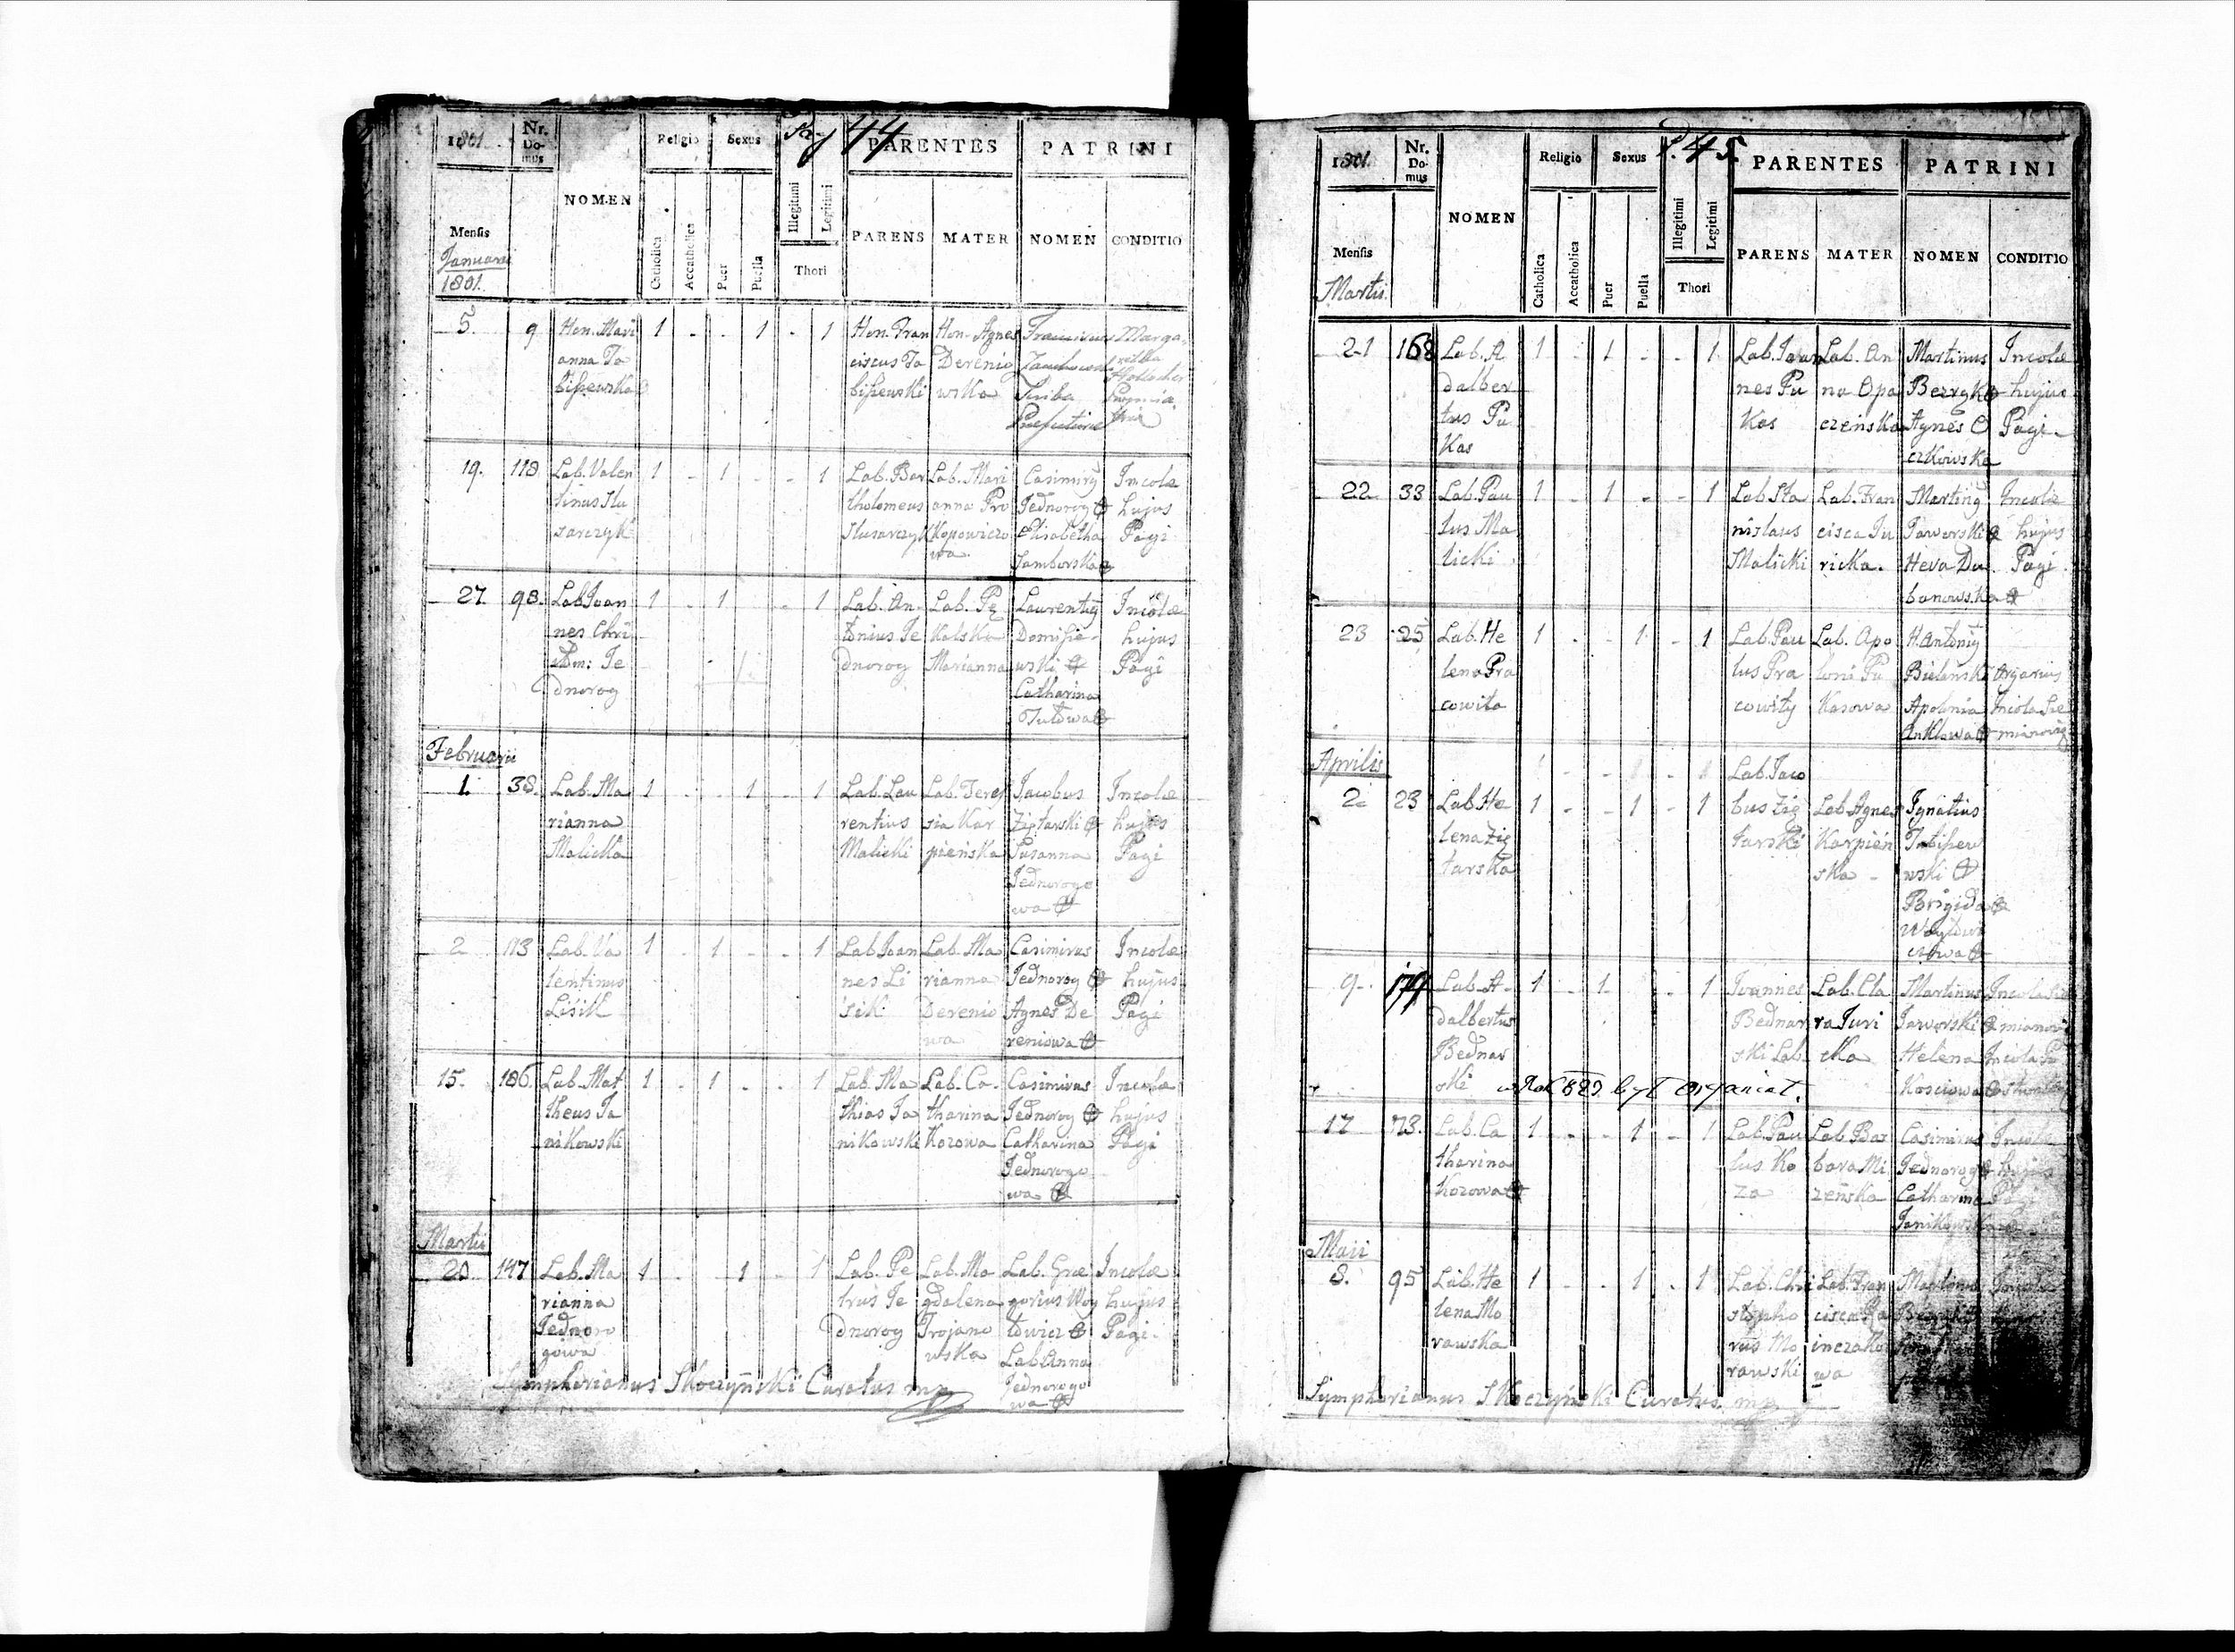 Pag 44
1801.
Nr. Domus
NOMEN
Religio
Sexus
PARENTES
PATRINI
Mensis
Catholica
Accatholica
Puer
Puella
Illegitimi
Legitimi
Thori
PARENS
MATER
NOMEN
CONDITIO
Januarii
1801.
5.
9
Hon. Mari
anna Ja
biszewska
1 - - 1 - 1
Hon. Fran
ciscus Ja
biszewski
Hon. Agnes
Derenio
wska
Franciscus
Scriba
19.
118
Lab. Valen
tinus Slu
sarczyk
1 - 1 - - 1
Lab. Bar
tholomeus
Slusarczyk
Lab. Mari
anna Pro
Kopowiczo
wa
Casimirỹ
Jednorog
Elisabetha
Jamborska
Incolæ
hujus
Pagi
27.
98.
Lab Joan
nes Chri
Je
dnorog
1 - 1 - 1
Lab. An-
tonius Je
dnorog
Lab. Pę
Kalska
Marianna
Laurentiỹ
Domisze-
wski
Catharina
Incolæ
hujus
Pagi
Februarii
1.
38.
Lab. Ma
rianna
Malicka
1 - - 1 - 1
Lab. Lau
rentius
Malicki
Lab. Tere
sia Kar
pieńska
Jacobus
Ziętarski
Susanna
Jednorogo
wa
Incolæ
hujus
Pagi
2
113
Lab. Va
lentinus
Lisik
1 - 1 - - 1
Lab Joan
nes Li
sik
Lab. Ma
rianna
Derenio
wa
Casimirus
Jednorog
Agnes De
reniowa
Incolæ
hujus
Pagi
15.
186.
Lab. Mat
theus Ja
nikowski
1 - 1 - - 1
Lab. Ma
thias Ja
nikowski
Lab. Ca-
tharina
Kozowa
Casimirus
Jednorog
Catharina
Jednorogo
wa
Incolæ
hujus
Pagi
Martii
20.
147
Lab. Ma
rianna
Jednoro
gowa
1 - - 1 - 1
Lab. Pe
trus Je
dnorog
Lab. Ma
gdalena
Trojano
wska
Lab. Gre
gorius Woy
towicz
Lab Anna
Jednorogo
wa
Incolæ
hujus
Pagi.
Symphorianus Skoczyński Curatus mp
P. 45
1801.
Nr. Domus
NOMEN
Religio
Sexus
PARENTES
PATRINI
Mensis
Catholica
Accatholica
Puer
Puella
Illegitimi
Legitimi
Thori
PARENS
MATER
NOMEN
CONDITIO
Martii
21
168
Lab. A
dalber
tus Pu
Kas
1 - 1 - - 1
Lab. Joan
nes Pu
Kas
Lab. An
na Opa
czeńska
Martinus
Agnes O
czkowska
Incolæ
hujus
Pagi-
22
33
Lab. Pau
lus Ma
licki
1 - 1 - - 1
Lab. Sta
nislaus
Malicki
Lab. Fran
cisca Ju
ricka.
Martinỹ
Jaworski
Heva Du
banowska
Incolæ
hujus
Pagi
23
25
Lab. He
lena Pra
cowita
1 - - 1 - 1
Lab. Pau
lus Pra
cowity
Lab. Apo
lonia Pu
Kasowa
H. Antoniỹ
Bielanski
Apolonia
Organarius
Aprilis
2
23
Lab. He
lena Zię
tarska
1 - - 1 - 1
Lab. Jaco
bus Zię
tarski
Lab. Agnes
Karpień
ska -
Ignatius
Jabiszew
wski
Brigida
9.
174
Lab. A-
dalbertus
Bednar
ski
1 - 1 - - 1
Joannes
Bednar
ski Lab.
Lab. Cla
ra Juri
cka
Martinus
Jaworski
Helena
Kosciowa
w Rok 823 był organist.
17
73.
Lab. Ca
tharina
Kozowa
1 - - 1 - 1
Lab. Pau
lus Ko
za
Lab. Bar
bara Mi
zeńska
Casimirus
Jednorog
Catharina
Janikowska
Incolæ
hujus
Maii
8.
95
Lab. He
lena Mo
rawska
1 - - 1 - 1
Lab. Chri
stopho
rus Mo
rawski
Lab. Fran
cisca
wa
Martinus
Symphorianus Skoczyński Curatus mp